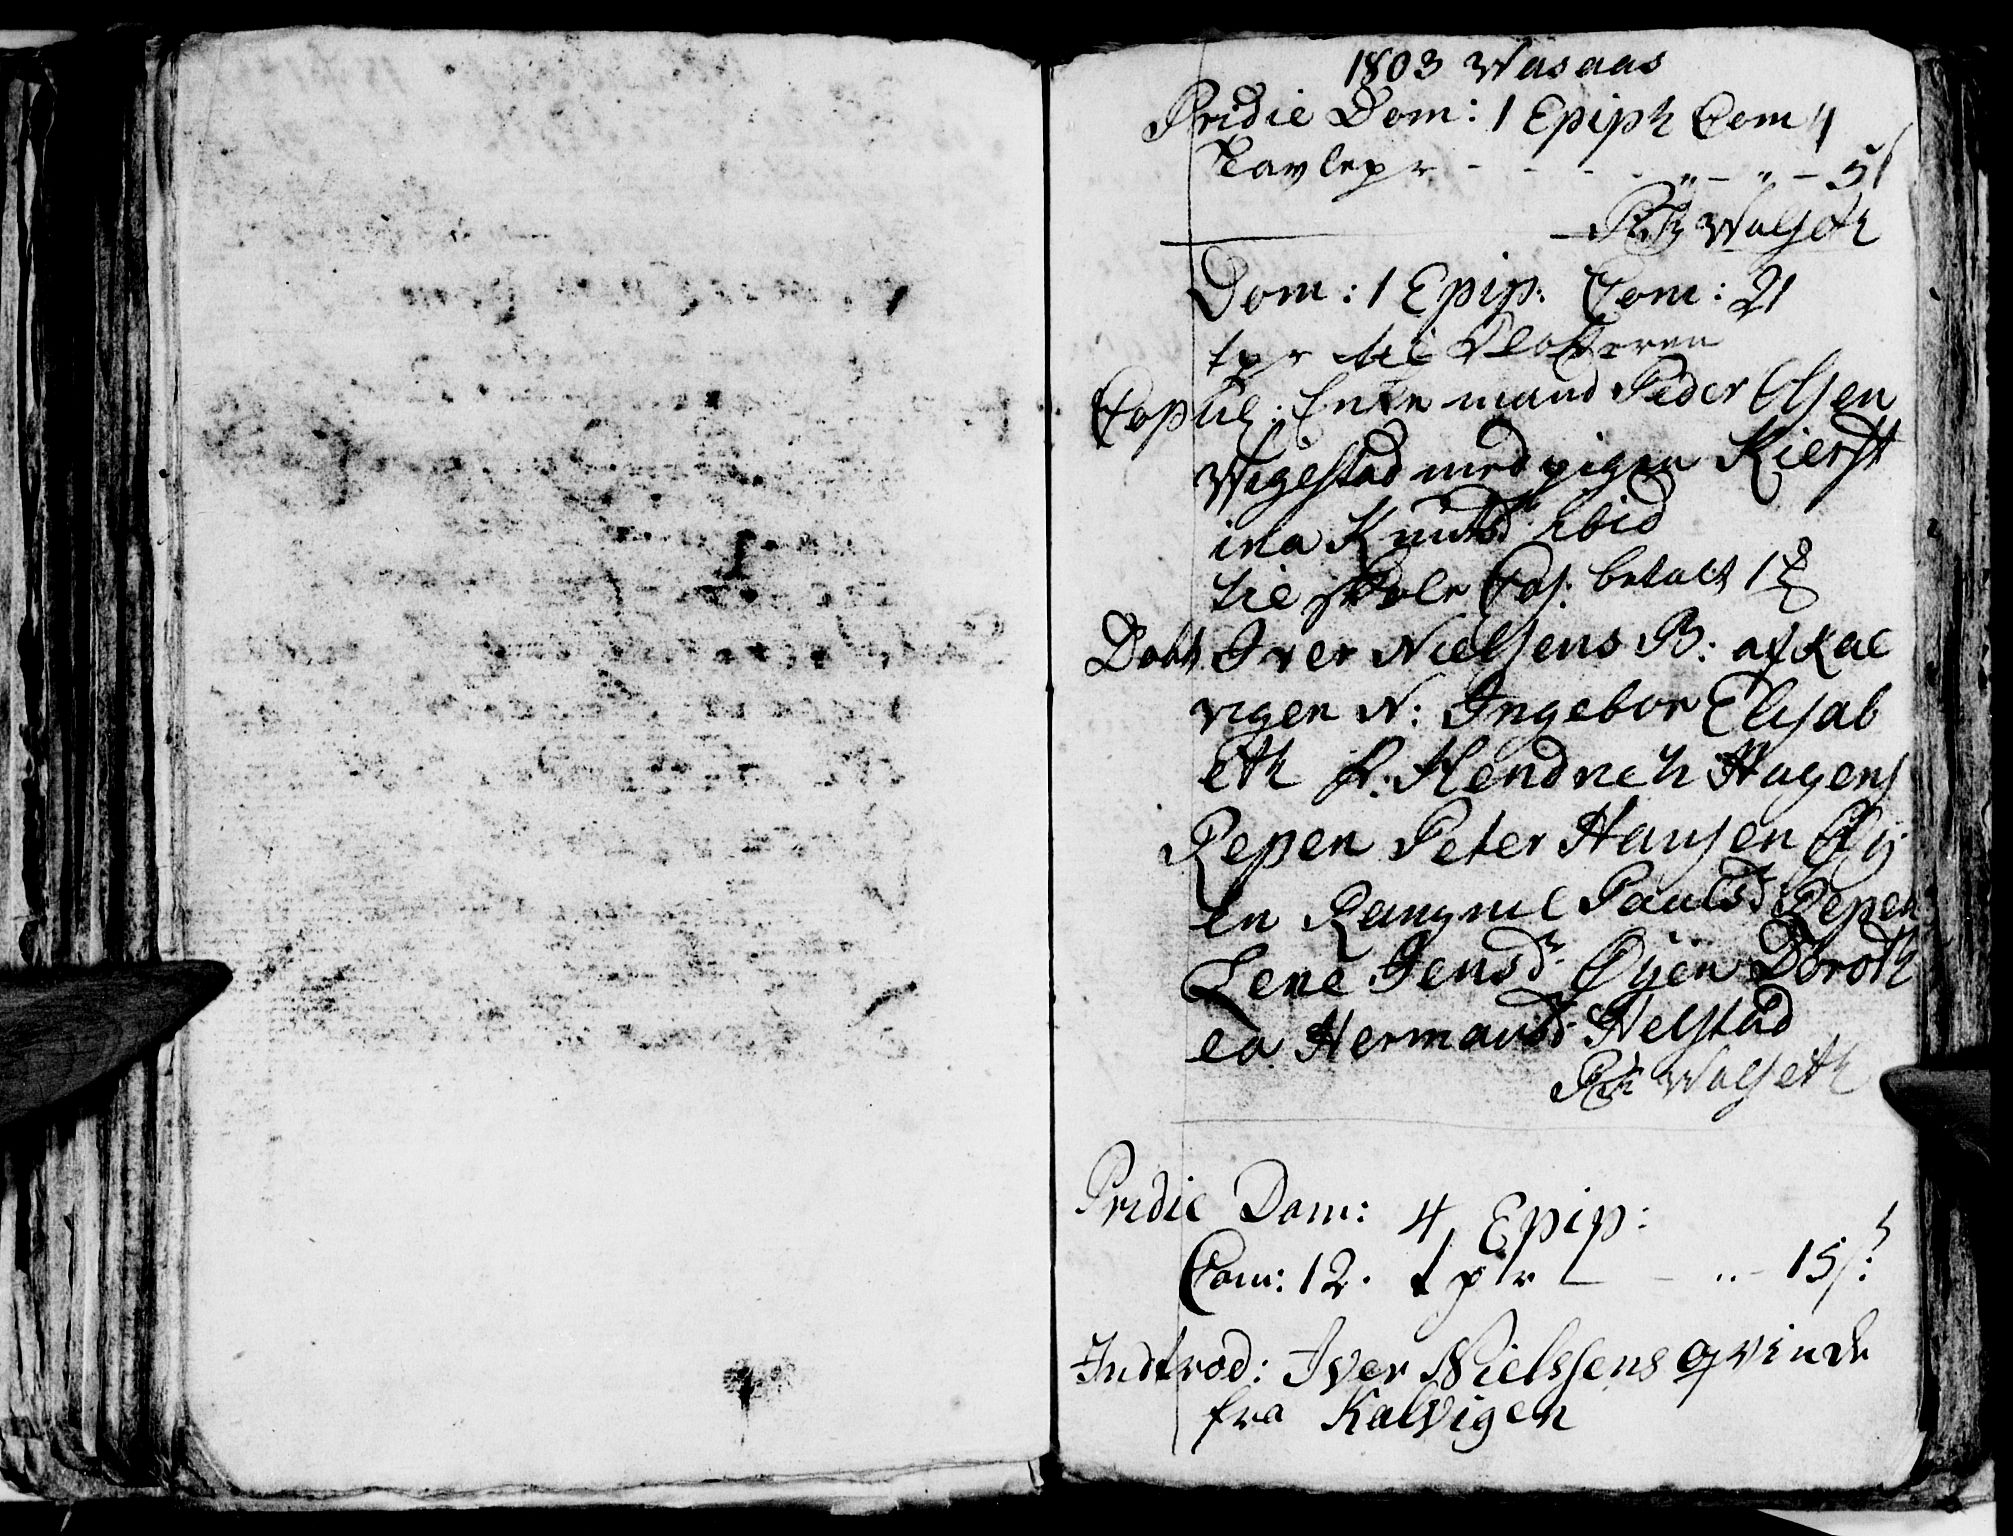 1803 Wasaas
Pridie Dom: 1 Epiph Com 4
Tavlepr - - - - „ - „ - 5
Walseth
Dom: 1 Epip: Com: 21
tpr til
Copul: Enkemand Peder Olsen
Wigestad med pigen Kierst
ina Knutsd ibid
til skole Cas: betalt 1
Døbt Iver Nielsens B: af Kal
vigen N: Ingebor Elisab
eth F: Hendrich Hagens
Repen Peter Hansen Øÿ
en Rangnil Paulsd: Repen
Lene Jensd: Øÿen Doroth
ea Hermansd: Helstad
Walseth
Pridie Dom: 4 Epip:
Com: 12. tpr - - „ - 15 s:
Indtrod: Iver Nielssens qvinde
fra Kalvigen